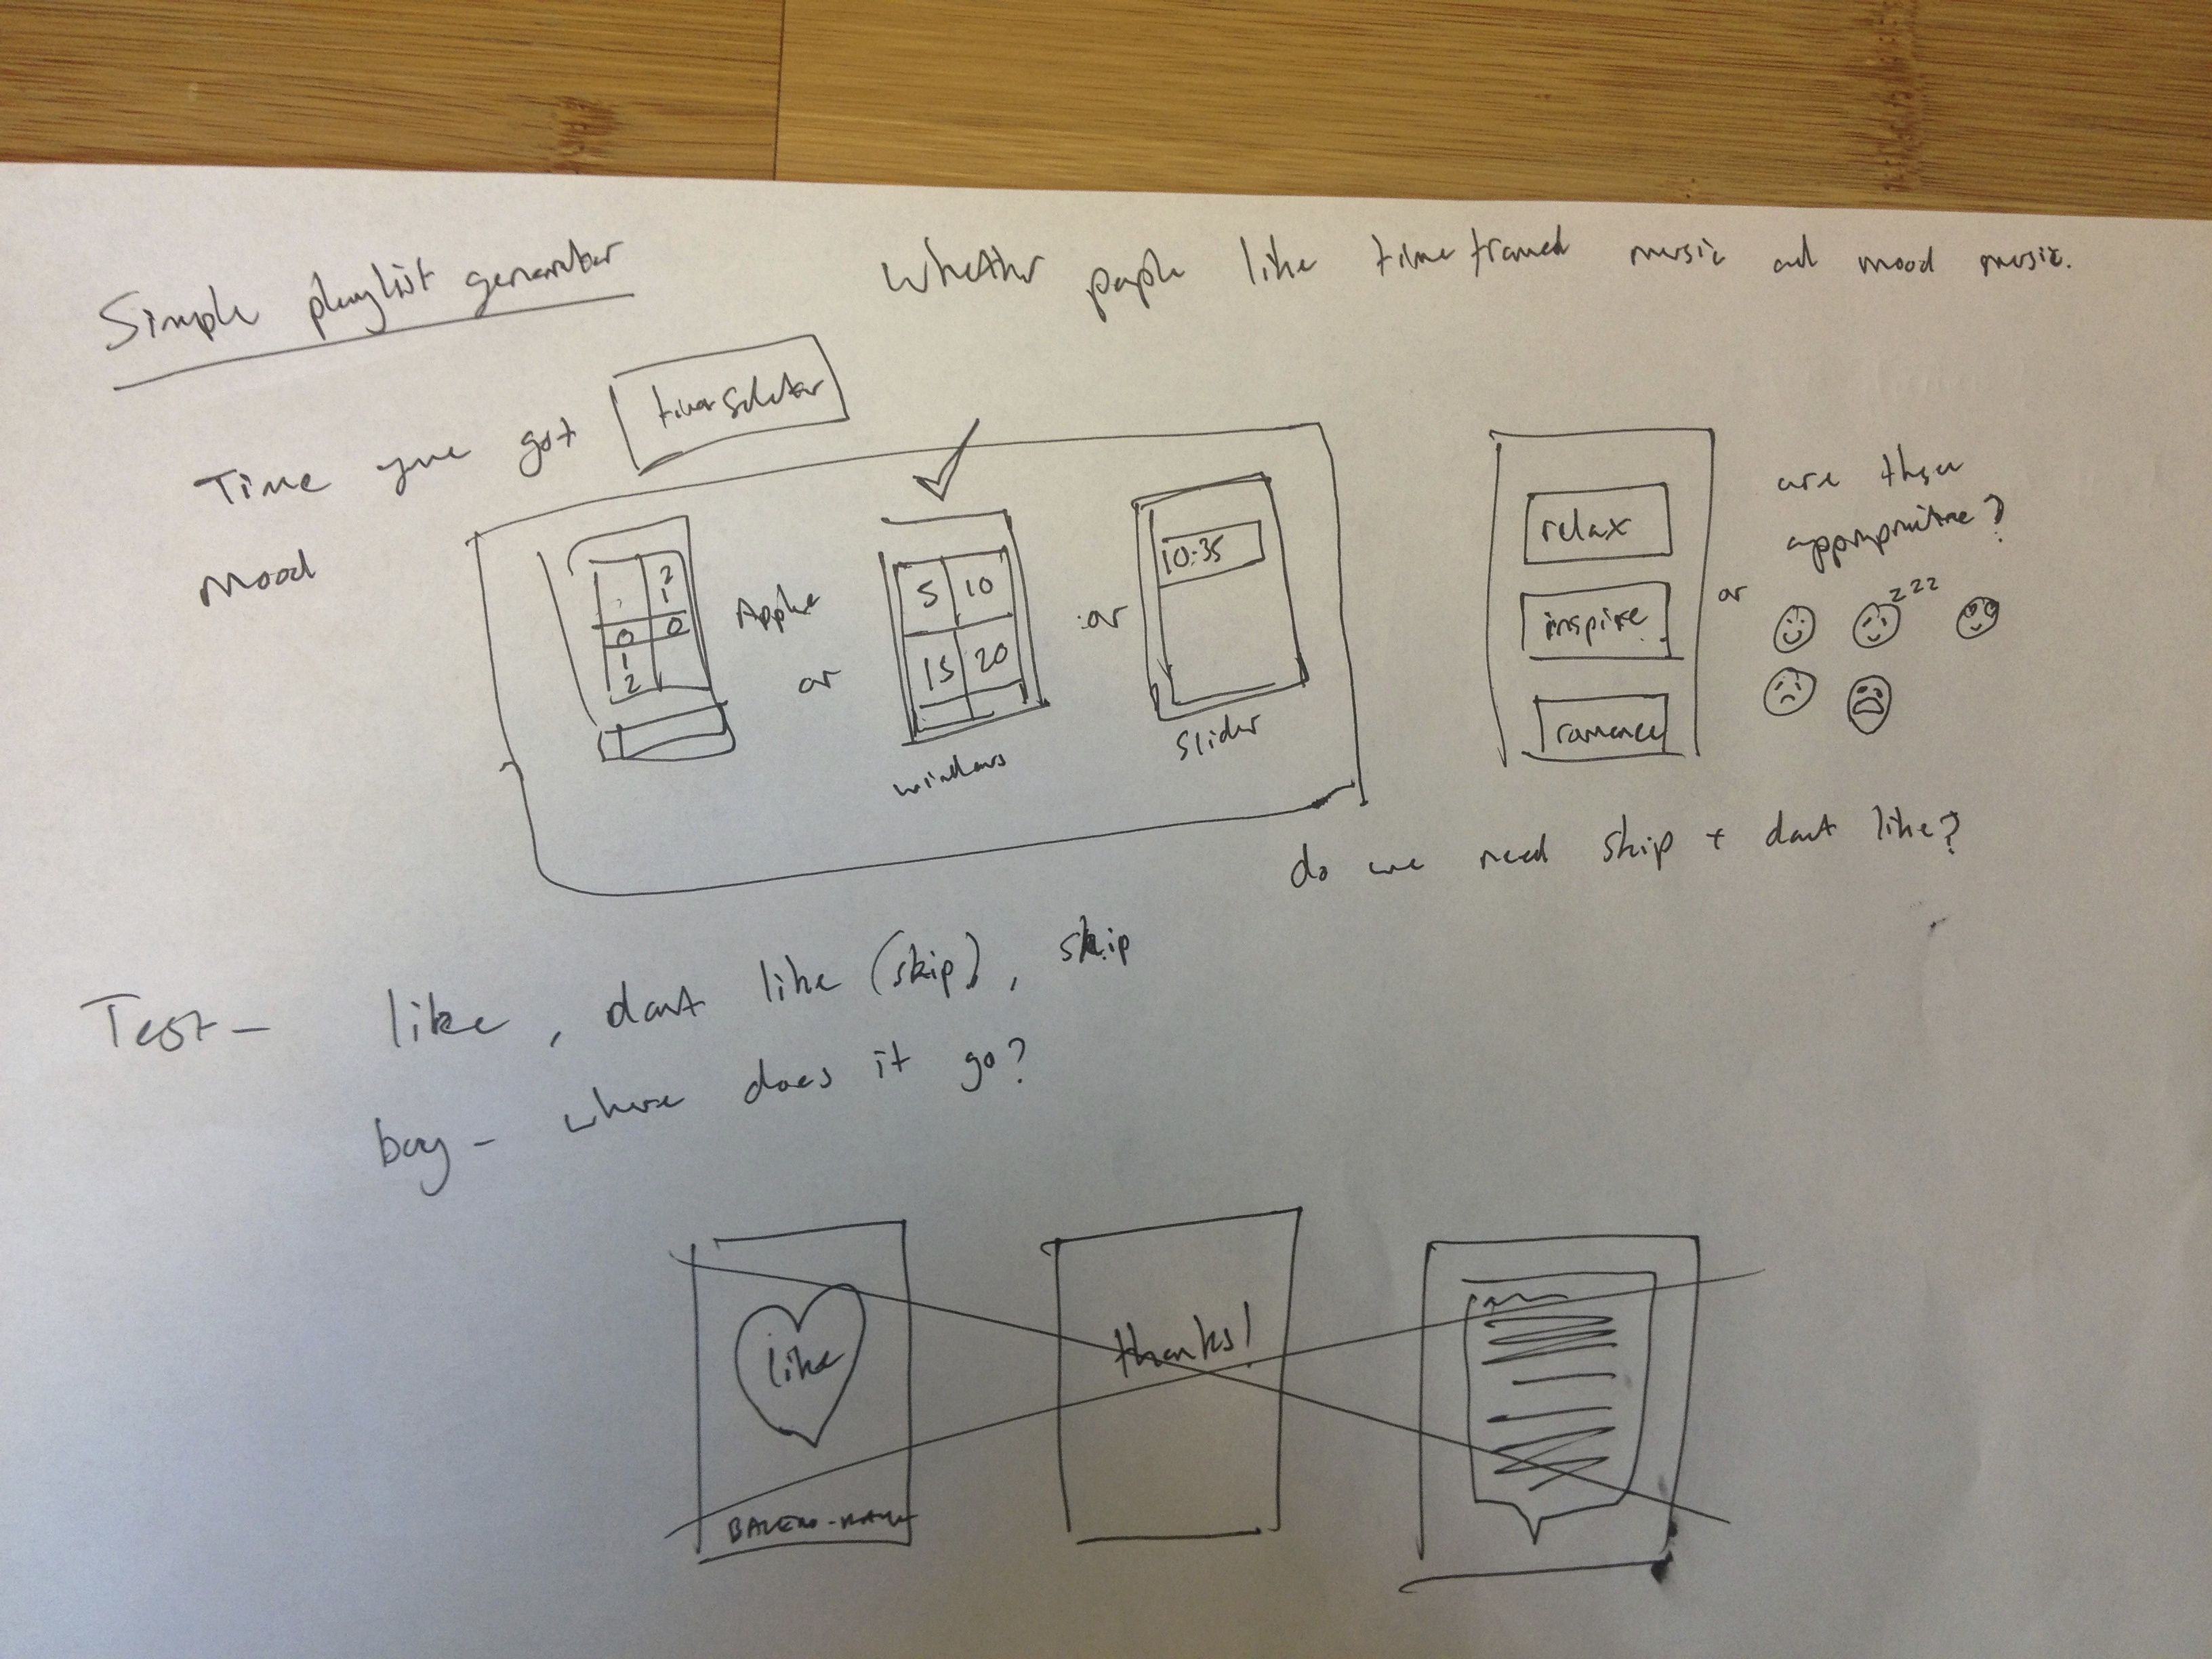 Simple playlist generator
Whether people like time framed music and mood music.
Time you've got
time selector
Mood
2
1
0 0
1
2
Apple
or
5 10
15 20
windows
or
10:35
Slider
relax
inspire
romance
or
are these
appropriate?
zzz
do we need skip + don't like?
Test - like, don't like (skip), skip
buy - where does it go?
like
thanks!